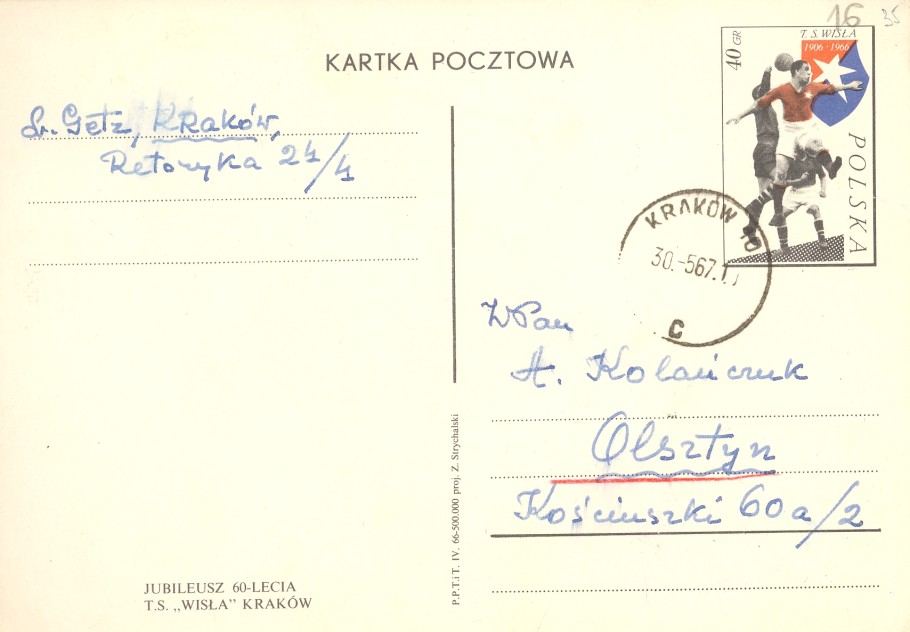 16
35
KARTKA POCZTOWA
40 GR
T. S. WISŁA
1906 - 1966
POLSKA
Getz, Kraków,
Retoryka 24/4
KRAKÓW 10
30.-567.1
C
WPan
A. Kolańczuk
Olsztyn
Kościuszki 60a/2
P.P.T.i T. IV. 66-500.000 proj. Z. Strychalski
JUBILEUSZ 60-LECIA
T.S. „WISŁA” KRAKÓW